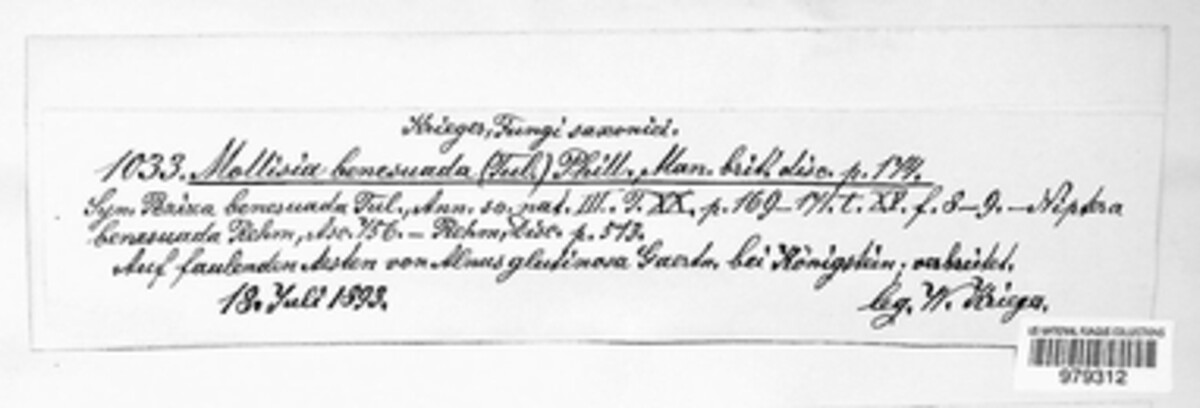 Krieger, Fungi saxonici.
1033. Mollisia benesuada (Tul.) Phill., Man. brit. disc. p. 174.
Sym. Peziza benesuada Tul., Ann. sc. nat. III. T. XX. p. 169–171. t. XV. f. 8–9. – Niptera
benesuada Rehm, Asc. 756. – Rehm, Disc. p. 513.
Auf faulenden Aesten von Alnus glutinosa Gaertn. bei Königstein; verbreitet.
18. Juli 1893.
leg. W. Krieger.
US NATIONAL FUNGUS COLLECTIONS
979312